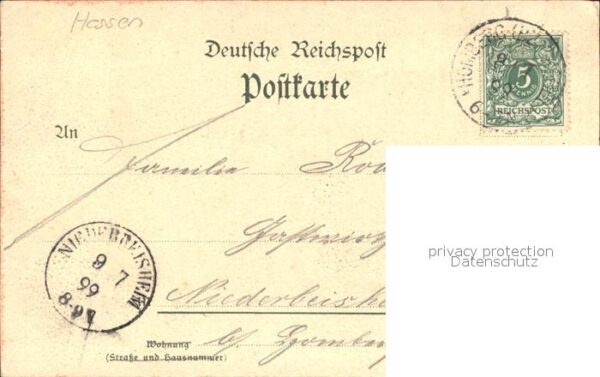 Hessen
Deutsche Reichspost
Postkarte
An
Familie
Gastwirt
Niederbeish
b/ Homberg
Wohnung
(Straße und Hausnummer)
5
REICHSPOST
HOMBERG
NIEDERBEISHEIM
8 7
99
6-8
privacy protection
Datenschutz